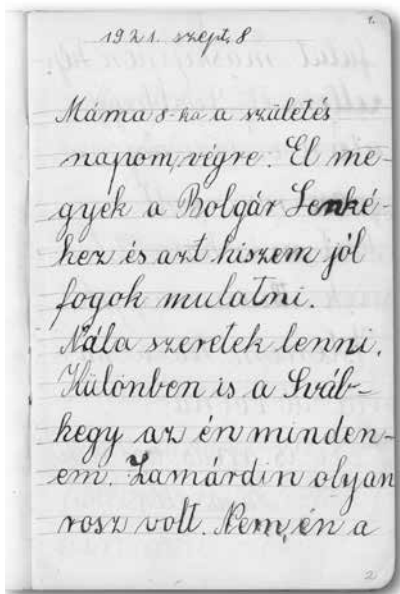 1.
1921. szept, 8
Máma 8-ka a születés
napom, végre. El me-
gyek a Bolgár Lenké-
hez és azt hiszem jól
fogok mulatni.
Nála szeretek lenni.
Különben is a Sváb-
hegy az én minden-
em. Zamárdin olyan
rosz volt. Nem, én a
2